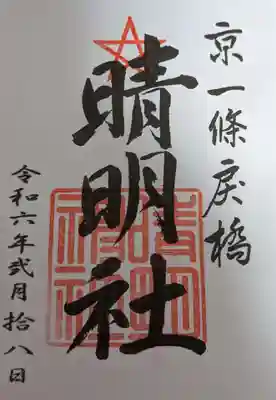 京一條戻橋
晴明社
晴明神社
令和六年弐月拾八日